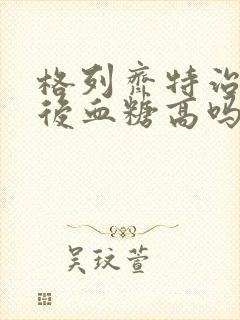 格列齐特治
后血糖高吗
吴玟萱